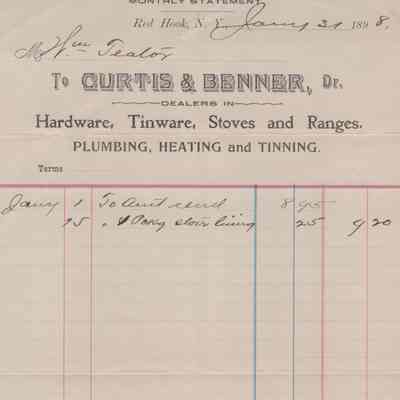 MONTHLY STATEMENT
Red Hook, N. Y. Jany 31 1898.
M Wm Teator
To CURTIS & BENNER, Dr.
DEALERS IN
Hardware, Tinware, Stoves and Ranges.
PLUMBING, HEATING and TINNING.
Terms
Jany 1 To Acct rend 8 95
25 " 1 stove lining 25 9 20